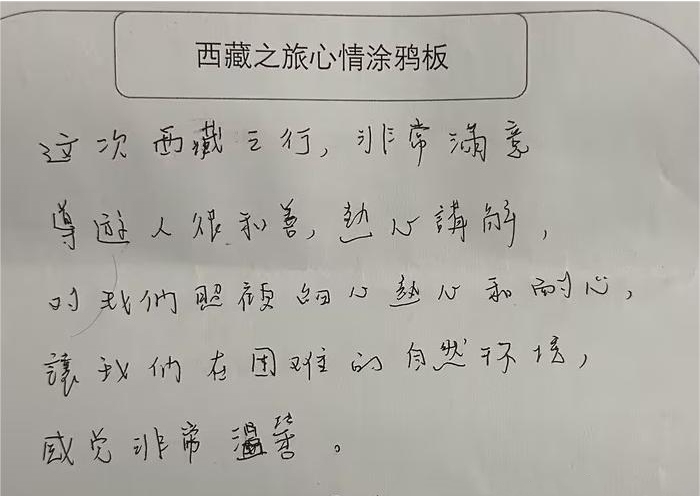 西藏之旅心情涂鸦板
这次西藏之行，非常满意
導遊人很和善，熱心講解，
对我們照顧细心熱心和耐心，
讓我们在困难的自然环境，
感觉非常温馨。